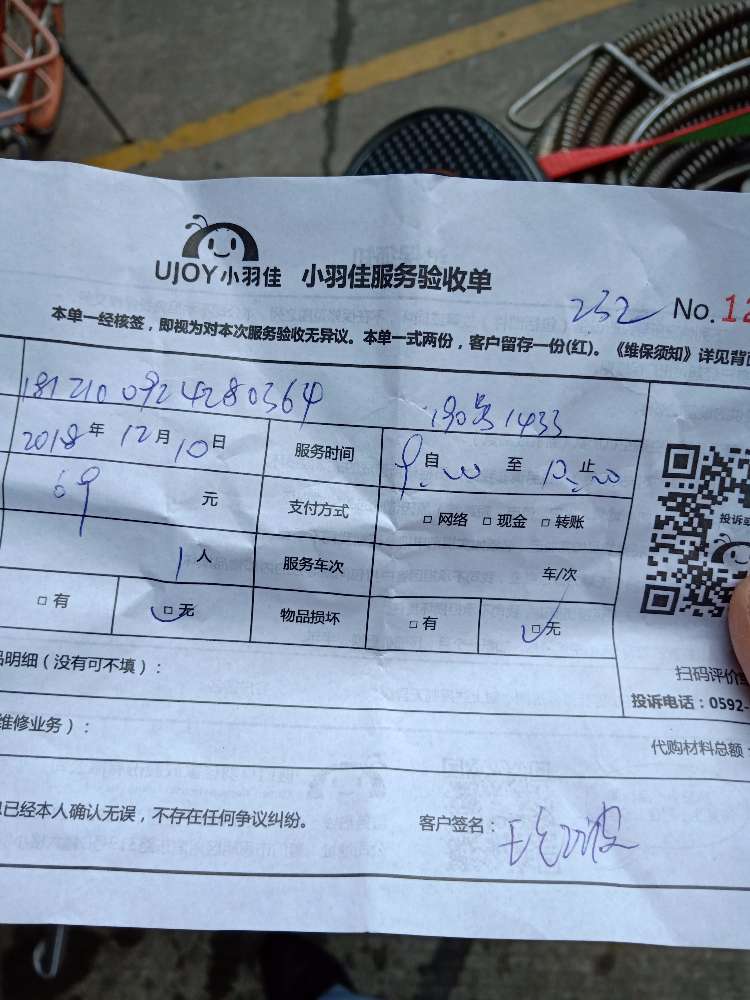 UJOY小羽佳 小羽佳服务验收单
232 No.12
本单一经核签，即视为对本次服务验收无异议。本单一式两份，客户留存一份(红)。《维保须知》详见背面
1812100924280364 190号1433
2018年12月10日 服务时间 9:00自 至 10:00止
69 元 支付方式 □网络 □现金 □转账
1人 服务车次 车/次
□有 □无 物品损坏 □有 □无
品明细（没有可不填）：
扫码评价
投诉电话：0592-
维修业务）：
代购材料总额
已经本人确认无误，不存在任何争议纠纷。 客户签名：